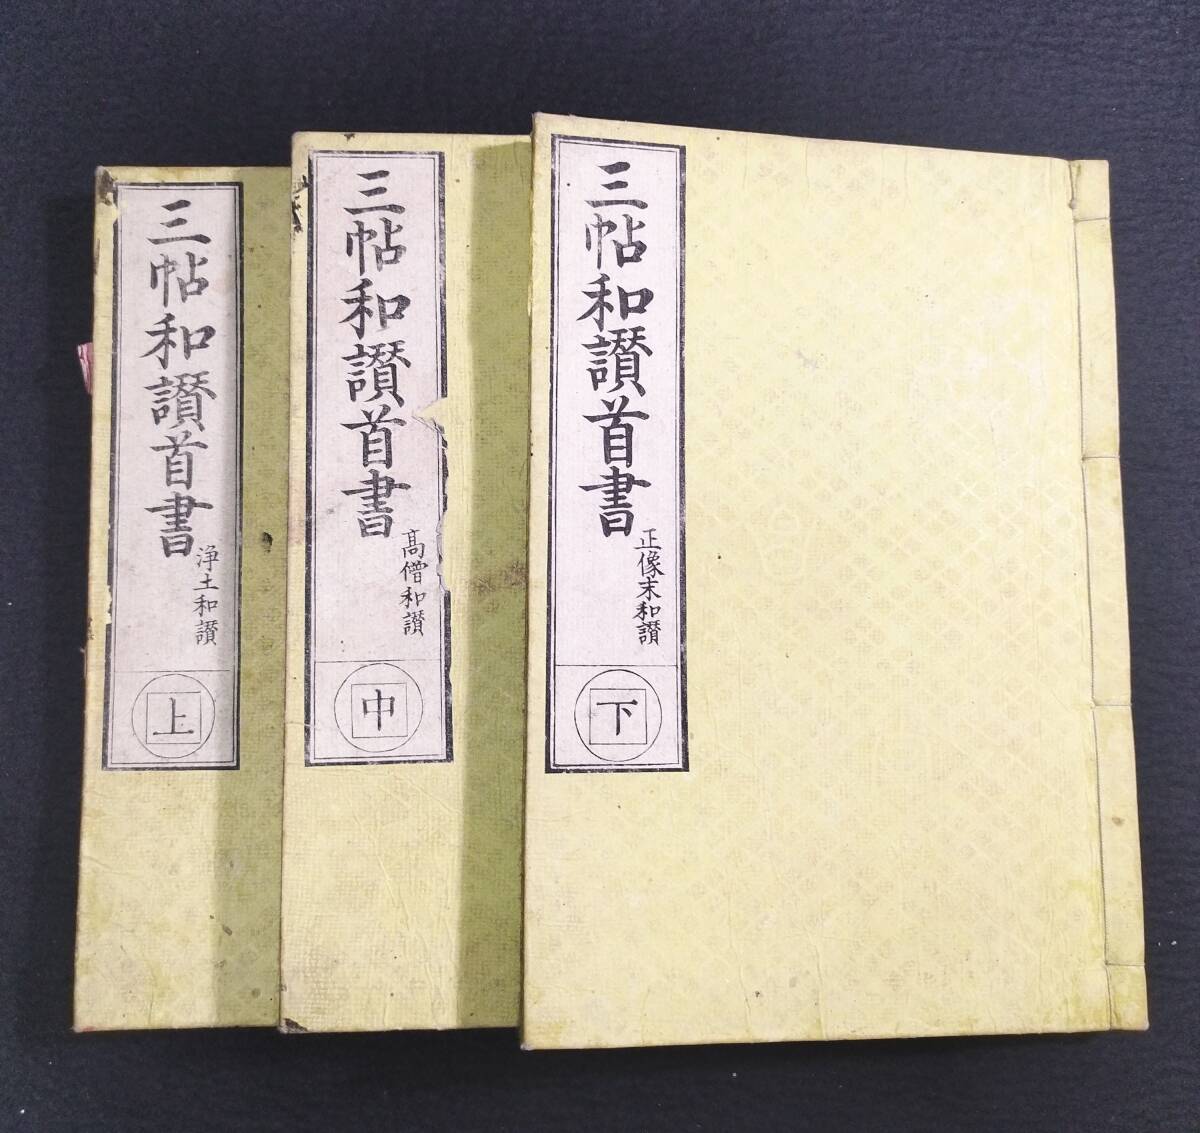 三帖和讃首書
浄土和讃
上
三帖和讃首書
高僧和讃
中
三帖和讃首書
正像末和讃
下